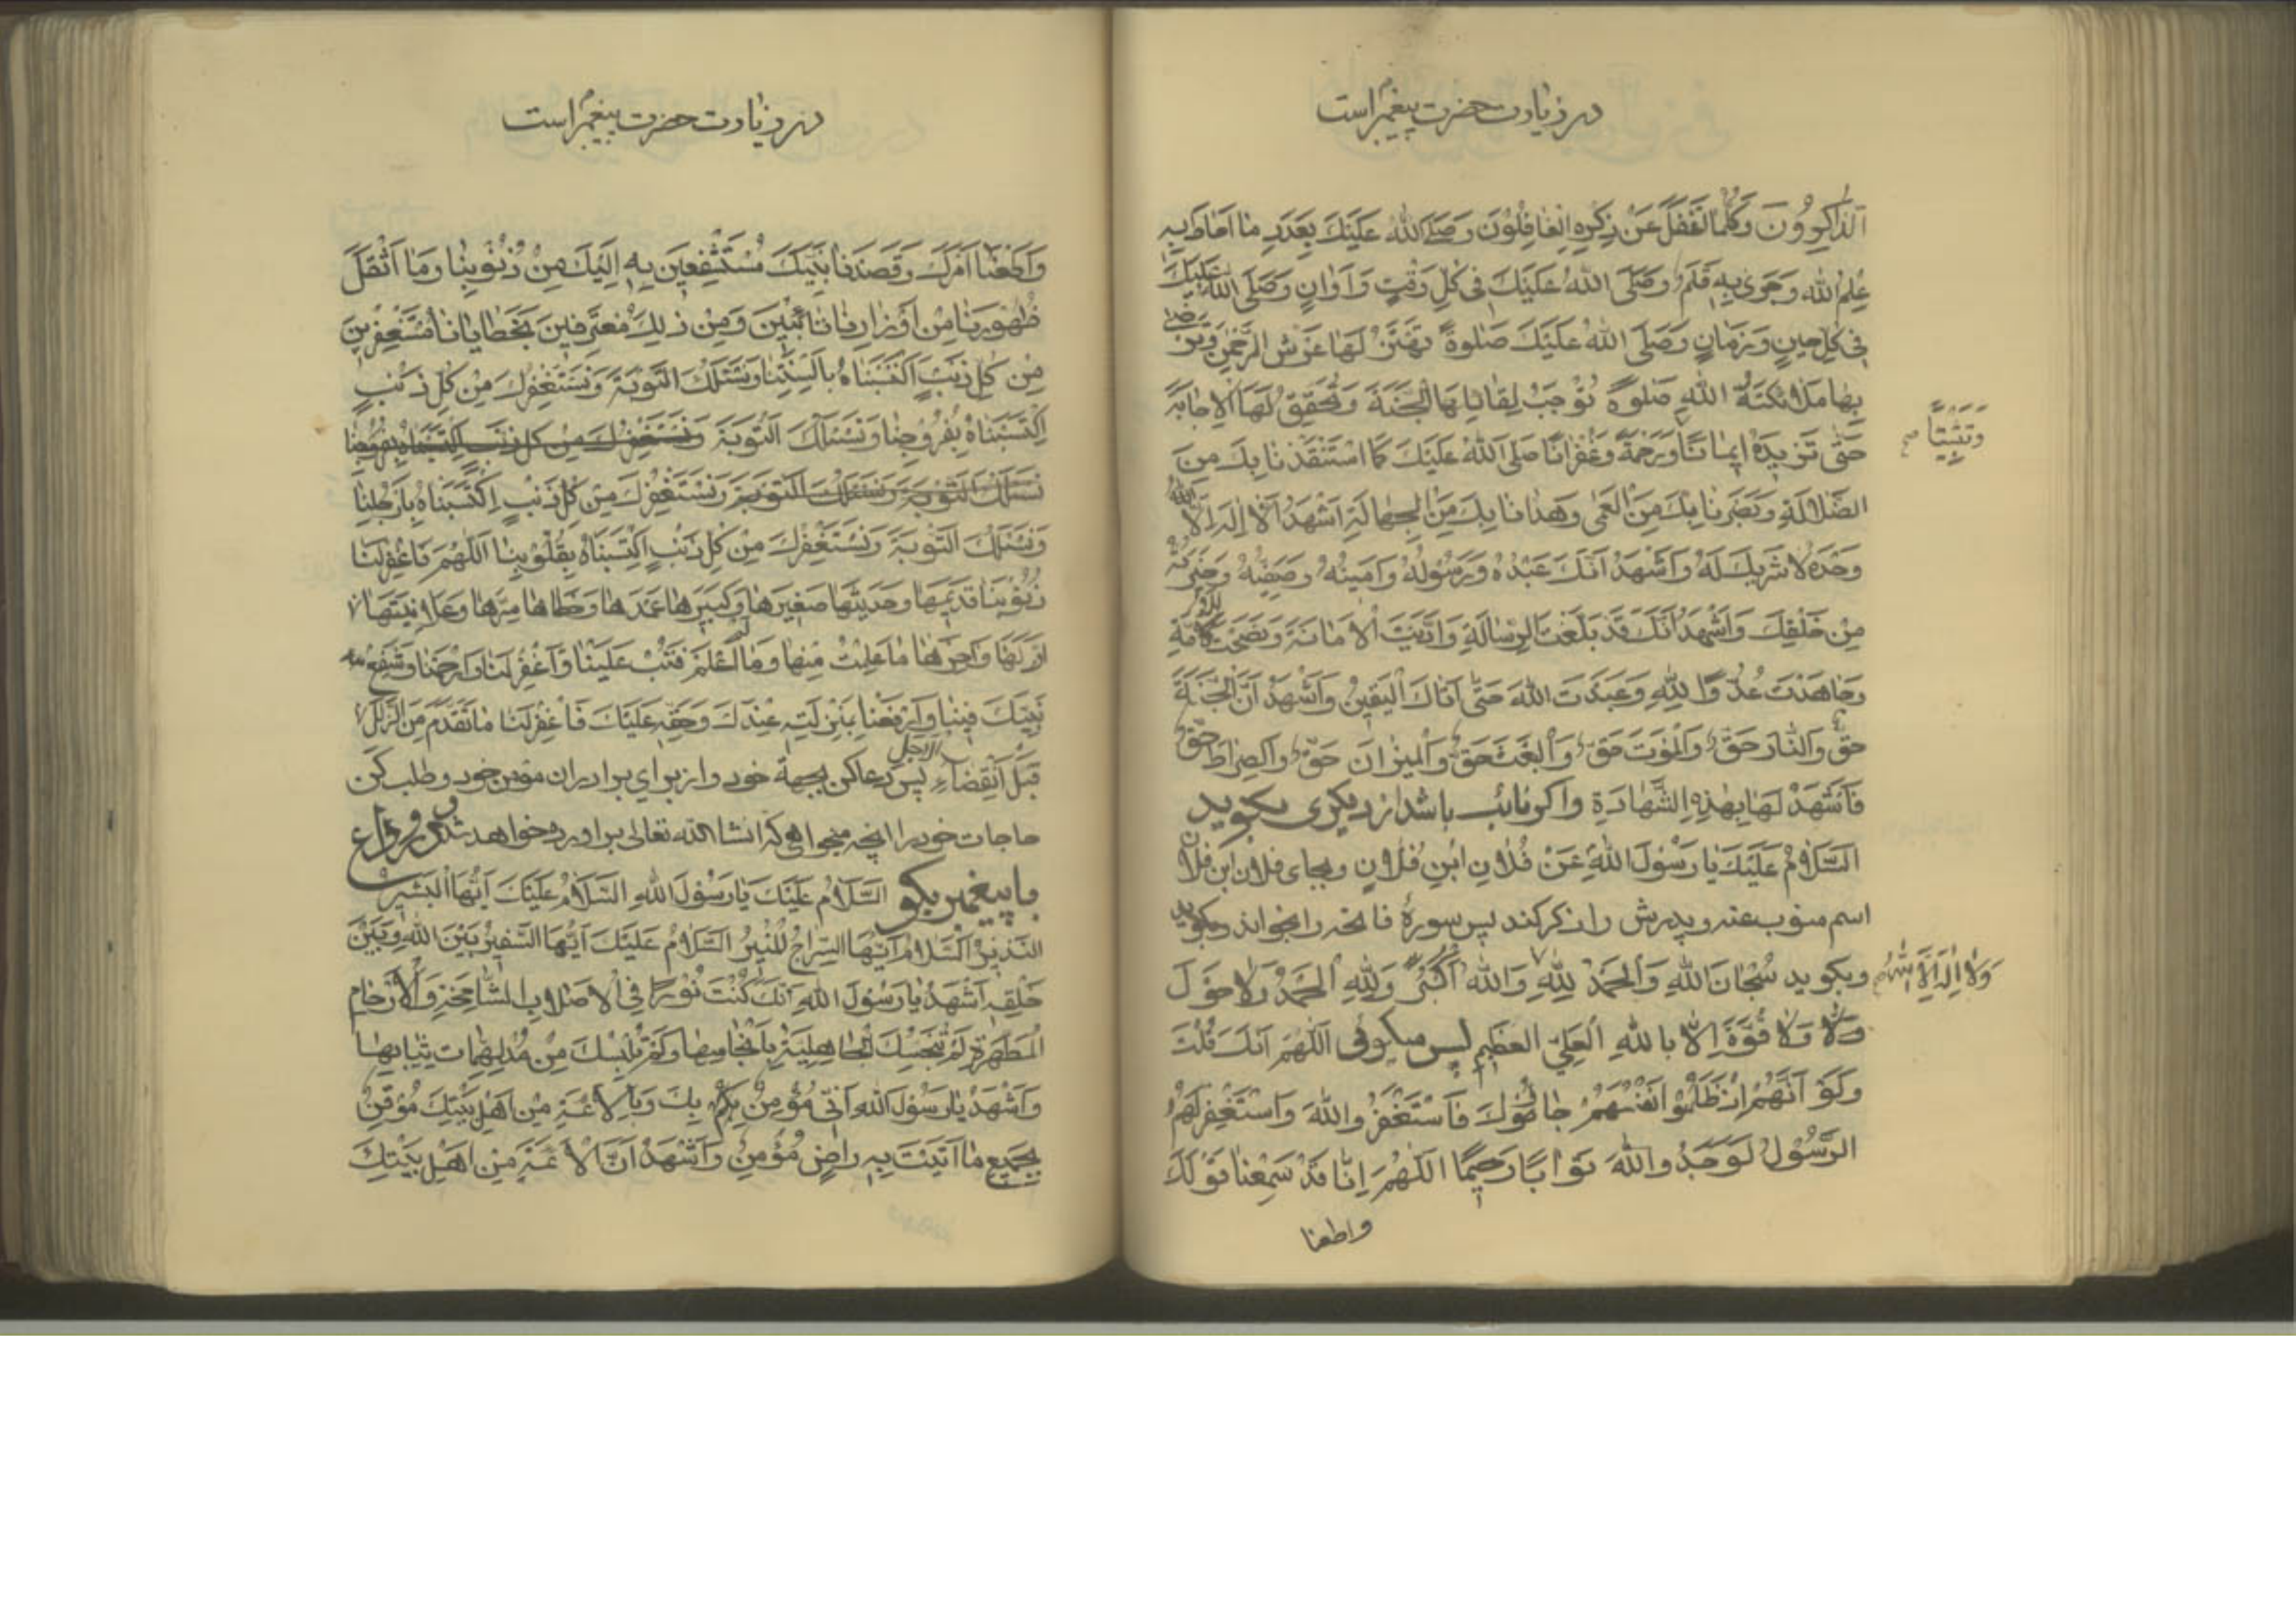 در زیارت حضرت پیغمبر است
الذَّاكِرُونَ وَكُلَّمَا غَفَلَ عَنْ ذِكْرِهِ الْغَافِلُونَ وَصَلَّى اللّٰهُ عَلَيْكَ بِعَدَدِ مَا اَحَاطَ بِهِ
عِلْمُ اللّٰهِ وَجَرٰى بِهِ قَلَمُ وَصَلَّى اللّٰهُ عَلَيْكَ فِى كُلِّ وَقْتٍ وَاَوَانٍ وَصَلَّى اللّٰهُ عَلَيْكَ
فِى كُلِّ حِينٍ وَزَمَانٍ وَصَلَّى اللّٰهُ عَلَيْكَ صَلٰوةً تَهْتَزُّ لَهَا عَرْشُ الرَّحْمٰنِ وَتَرْضٰى
بِهَا مَلَائِكَةُ اللّٰهِ صَلٰوةً تُوْجِبُ لِقَائِلِهَا الْجَنَّةَ وَتُحَقِّقُ لَهَا الْاِجَابَةَ
حَتّٰى تَزِيدَهُ اِيمَانًا وَرَحْمَةً وَغُفْرَانًا صَلَّى اللّٰهُ عَلَيْكَ كَمَا اسْتَنْقَذَنَا بِكَ مِنَ
وَتَثْبِيتًا صح
الضَّلَالَةِ وَبَصَّرَنَا بِكَ مِنَ الْعَمٰى وَهَدَانَا بِكَ مِنَ الْجَهَالَةِ اَشْهَدُ اَنْ لَا اِلٰهَ اِلَّا اللّٰهُ
وَحْدَهُ لَا شَرِيكَ لَهُ وَاَشْهَدُ اَنَّكَ عَبْدُهُ وَرَسُولُهُ وَاَمِينُهُ وَصَفِيُّهُ وَخِيَرَتُهُ
مِنْ خَلْقِكَ وَاَشْهَدُ اَنَّكَ قَدْ بَلَّغْتَ الرِّسَالَةَ وَاَدَّيْتَ الْاَمَانَةَ وَنَصَحْتَ لِلْاُمَّةِ
وَجَاهَدْتَ عَدُوَّ اللّٰهِ وَعَبَدْتَ اللّٰهَ حَتّٰى اَتَاكَ الْيَقِينُ وَاَشْهَدُ اَنَّ الْجَنَّةَ
حَقٌّ وَالنَّارَ حَقٌّ وَالْمَوْتَ حَقٌّ وَالْبَعْثَ حَقٌّ وَالْمِيزَانَ حَقٌّ وَالصِّرَاطَ حَقٌّ
فَاشْهَدْ لَهَا بِهٰذِهِ الشَّهَادَةِ واکر نائب باشد از دیکری بکوید
السَّلَامُ عَلَيْكَ يَا رَسُولَ اللّٰهِ عَنْ فُلَانِ ابْنِ فُلَانٍ وبجای فلان ابن فلان
اسم منوب عنه و پدرش را ذکر کند پس سورهٔ فاتحه را بخواند وبکوید
وبکوید سُبْحَانَ اللّٰهِ وَالْحَمْدُ لِلّٰهِ وَاللّٰهُ اَكْبَرُ وَلِلّٰهِ الْحَمْدُ وَلَا حَوْلَ
وَلَا اِلٰهَ اِلَّا اللّٰهُ صح
وَلَا وَلَا قُوَّةَ اِلَّا بِاللّٰهِ الْعَلِيِّ الْعَظِيمِ پس میکوئی اَللّٰهُمَّ اَنَّكَ قُلْتَ
وَلَوْ اَنَّهُمْ اِذْ ظَلَمُوا اَنْفُسَهُمْ جَاءُوكَ فَاسْتَغْفَرُوا اللّٰهَ وَاسْتَغْفَرَ لَهُمُ
الرَّسُولُ لَوَجَدُوا اللّٰهَ تَوَّابًا رَحِيمًا اَللّٰهُمَّ اِنَّا قَدْ سَمِعْنَا قَوْلَكَ
واطعنا
در زیارت حضرت پیغمبر است
وَاَطَعْنَا اَمْرَكَ وَقَصَدْنَا نَبِيَّكَ مُسْتَشْفِعِينَ بِهِ اِلَيْكَ مِنْ ذُنُوبِنَا وَمَا اَثْقَلَ
ظُهُورَنَا مِنْ اَوْزَارِنَا تَائِبِينَ وَمِنْ ذٰلِكَ مُعْتَرِفِينَ بِخَطَايَانَا مُسْتَغْفِرِينَ
مِنْ كُلِّ ذَنْبٍ اكْتَسَبْنَاهُ بِاَلْسِنَتِنَا وَنَسْئَلُكَ التَّوْبَةَ وَنَسْتَغْفِرُكَ مِنْ كُلِّ ذَنْبٍ
اكْتَسَبْنَاهُ بِفُرُوجِنَا وَنَسْئَلُكَ التَّوْبَةَ وَنَسْتَغْفِرُكَ مِنْ كُلِّ ذَنْبٍ اكْتَسَبْنَاهُ بِفُرُوجِنَا
نَسْئَلُكَ التَّوْبَةَ وَنَسْئَلُكَ التَّوْبَةَ وَنَسْتَغْفِرُكَ مِنْ كُلِّ ذَنْبٍ اِكْتَسَبْنَاهُ بِاَرْجُلِنَا
وَنَسْئَلُكَ التَّوْبَةَ وَنَسْتَغْفِرُكَ مِنْ كُلِّ ذَنْبٍ اكْتَسَبْنَاهُ بِقُلُوبِنَا اَللّٰهُمَّ فَاغْفِرْ لَنَا
ذُنُوبَنَا قَدِيمَهَا وَحَدِيثَهَا صَغِيرَهَا وَكَبِيرَهَا عَمْدَهَا وَخَطَاهَا سِرَّهَا وَعَلَانِيَتَهَا
اَوَّلَهَا وَاٰخِرَهَا مَا عَلِمْتُ مِنْهَا وَمَا لَمْ اَعْلَمْ فَتُبْ عَلَيْنَا وَاغْفِرْ لَنَا وَارْحَمْنَا وَشَفِّعْ
نَبِيَّكَ فِينَا وَارْفَعْنَا بِمَنْزِلَتِهِ عِنْدَكَ وَحَقِّهِ عَلَيْكَ فَاغْفِرْ لَنَا مَا تَقَدَّمَ مِنَ الزَّلَلِ
قَبْلَ انْقِضَاءِ الاجل پس دعا کن بجهة خود و از برای برادران مؤمن خود وطلب کن
حاجات خود را انچه میخواهی که انشاالله تعالی براورده خواهد شد
با پیغمبر بکو السَّلَامُ عَلَيْكَ يَا رَسُولَ اللّٰهِ السَّلَامُ عَلَيْكَ اَيُّهَا الْبَشِيرُ
النَّذِيرُ السَّلَامُ اَيُّهَا السِّرَاجُ الْمُنِيرُ السَّلَامُ عَلَيْكَ اَيُّهَا السَّفِيرُ بَيْنَ اللّٰهِ وَبَيْنَ
خَلْقِهِ اَشْهَدُ يَا رَسُولَ اللّٰهِ اَنَّكَ كُنْتَ نُورًا فِى الْاَصْلَابِ الشَّامِخَةِ وَالْاَرْحَامِ
الْمُطَهَّرَةِ لَمْ تُنَجِّسْكَ الْجَاهِلِيَّةُ بِاَنْجَاسِهَا وَلَمْ تُلْبِسْكَ مِنْ مُدْلَهِمَّاتِ ثِيَابِهَا
وَاَشْهَدُ يَا رَسُولَ اللّٰهِ اَنِّى مُؤْمِنٌ بِكَ وَبِالْاَئِمَّةِ مِنْ اَهْلِ بَيْتِكَ مُوقِنٌ
بِجَمِيعِ مَا اَتَيْتَ بِهِ رَاضٍ مُؤْمِنٌ وَاَشْهَدُ اَنَّ الْاَئِمَّةَ مِنْ اَهْلِ بَيْتِكَ